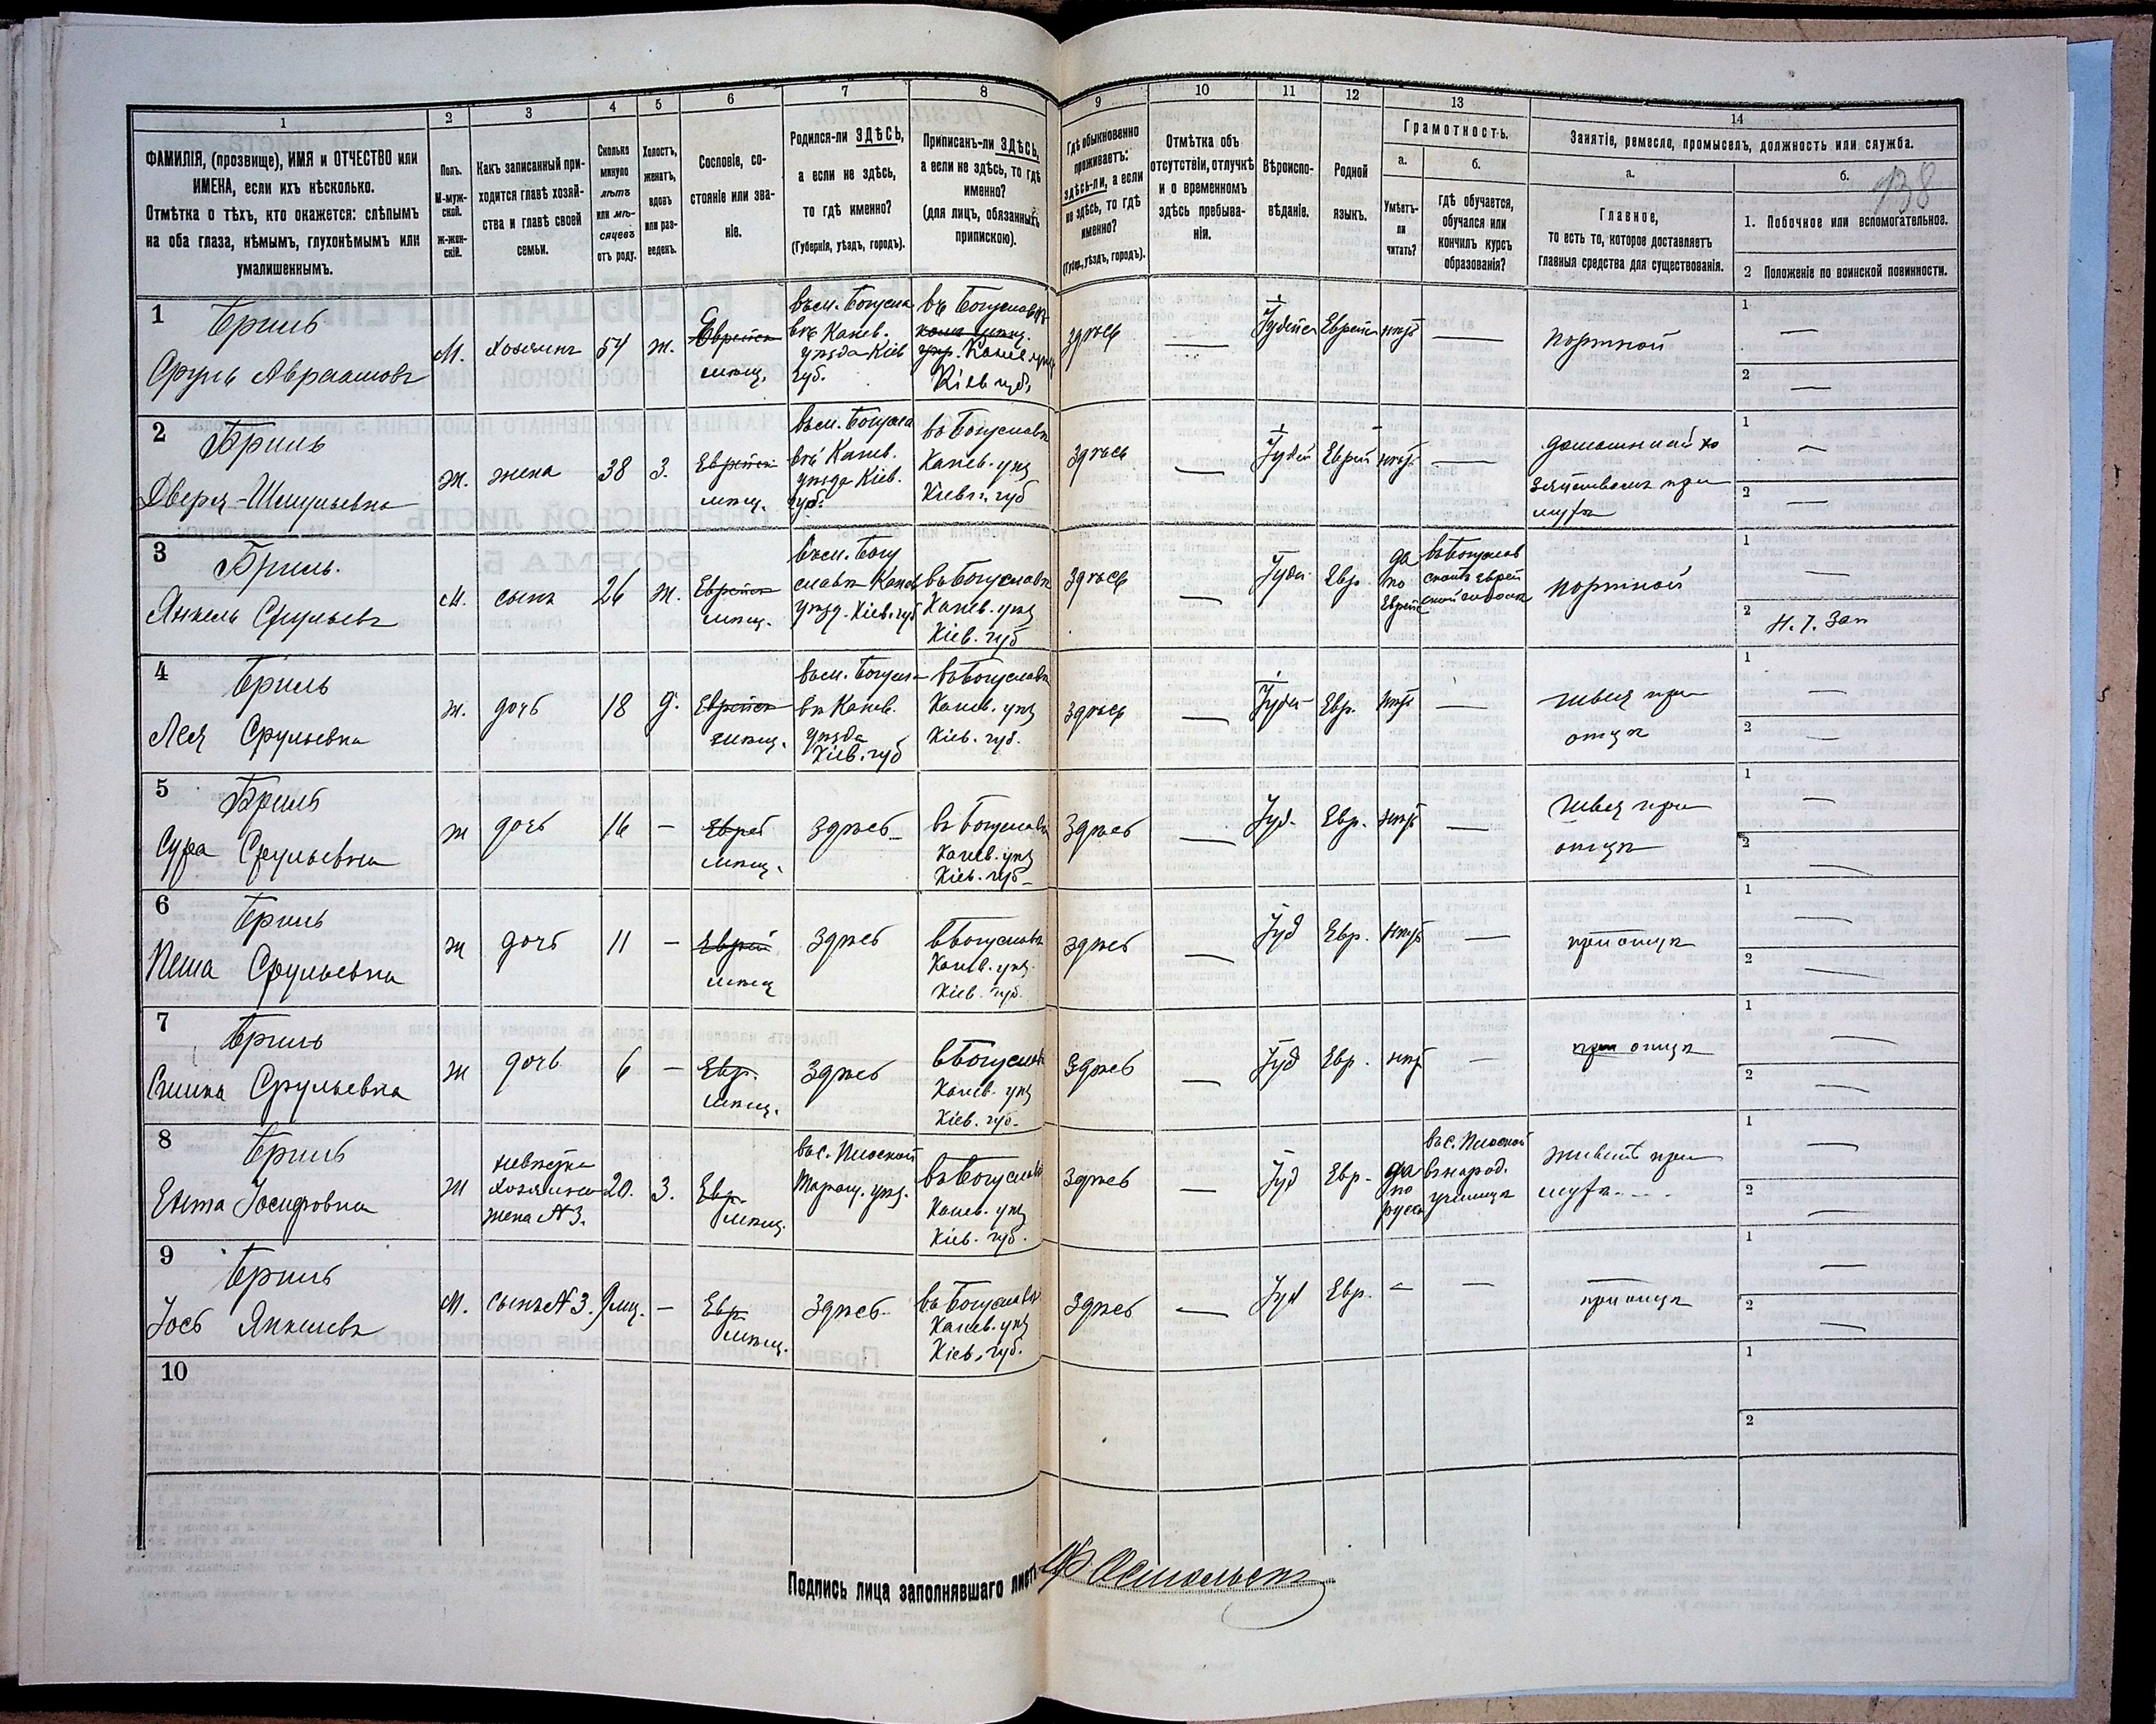 138
1 2 3 4 5 6 7 8 9 10 11 12 13 14
ФАМИЛІЯ, (прозвище), ИМЯ и ОТЧЕСТВО или
ИМЕНА, если ихъ нѣсколько.
Отмѣтка о тѣхъ, кто окажется: слѣпымъ
на оба глаза, нѣмымъ, глухонѣмымъ или
умалишеннымъ.
Полъ.
М-муж-
ской.
Ж-жен-
скій.
Какъ записанный при-
ходится главѣ хозяй-
ства и главѣ своей
семьи.
Сколько
минуло
лѣтъ
или мѣ-
сяцевъ
отъ роду.
Холостъ,
женатъ,
вдовъ
или раз-
веденъ.
Сословіе, со-
стояніе или зва-
ніе.
Родился-ли ЗДѢСЬ,
а если не здѣсь,
то гдѣ именно?
(Губернія, уѣздъ, городъ).
Приписанъ-ли ЗДѢСЬ,
а если не здѣсь, то гдѣ
именно?
(для лицъ, обязанныхъ
припискою).
Гдѣ обыкновенно
проживаетъ:
здѣсь-ли, а если
не здѣсь, то гдѣ
именно?
(Губер., уѣздъ, городъ).
Отмѣтка объ
отсутствіи, отлучкѣ
и о временномъ
здѣсь пребыва-
ніи.
Вѣроиспо-
вѣданіе.
Родной
языкъ.
Грамотность.
а.
Умѣетъ-
ли
читать?
б.
гдѣ обучается,
обучался или
кончилъ курсъ
образованія?
Занятіе, ремесло, промыселъ, должность или служба.
а.
Главное,
то есть то, которое доставляетъ
главныя средства для существованія.
б.
1. Побочное или вспомогательное.
2 Положеніе по воинской повинности.
1
Бриль
Сруль Авраамовъ
М.
Хозяинъ
54
ж.
Еврейск
мѣщ.
въ м. Богусла
вѣ Канев.
уѣзда Кіев
губ.
въ Богуслав
Канев. уѣз
Кіев. губ.
здѣсь
—
Іудейск
Еврейск
нѣтъ
—
портной
1 —
2 —
2
Бриль
Двера-Шмульевна
ж.
жена
38
З.
Еврейск
мѣщ.
въ м. Богусла
вѣ Канев.
уѣзда Кіев.
губ.
въ Богуславѣ
Канев. уѣз
Кіевск. губ
здѣсь
—
Іудей
Еврей
нѣтъ
—
домашний хо
зяйством при
мужѣ
1 —
2 —
3
Бриль.
Янкель Срульевъ
М.
сынъ
26
ж.
Еврейск
мѣщ.
въ м. Богу
славѣ Канев
уѣзд. Кіев. губ
въ Богуславѣ
Канев. уѣз
Кіев. губ
здѣсь
—
Іудей
Евр.
да
по
Еврейс
въ Богуслав
скомъ еврей
ской школѣ
портной
1 —
2
4
Бриль
Лея Срульевна
ж.
дочь
18
д.
Еврейск
мѣщ.
въ м. Богусла
вѣ Канев.
уѣзда
Кіев. губ
въ Богуславѣ
Канев. уѣз
Кіев. губ.
здѣсь
—
Іудей
Евр.
нѣтъ
—
швея при
отцѣ
1 —
2 —
5
Бриль
Сура Срульевна
ж
дочь
16
—
Еврей
мѣщ.
Здѣсь
въ Богуславѣ
Канев. уѣз
Кіев. губ
Здѣсь
—
Іуд.
Евр.
нѣтъ
—
Швея при
отцѣ
1 —
2 —
6
Бриль
Песа Срульевна
ж
дочь
11
—
Еврей
мѣщ
Здѣсь
въ Богуславѣ
Канев. уѣз.
Кіев. губ.
здѣсь
—
Іуд
Евр.
нѣтъ
—
при отцѣ
1 —
2 —
7
Бриль
Срульевна
ж
дочь
6
—
Евр.
мѣщ.
Здѣсь
въ Богуслав
Канев. уѣз
Кіев. губ.
Здѣсь
—
Іуд
Евр.
нѣтъ
—
при отцѣ
1 —
2 —
8
Бриль
Ента Іосифовна
ж
невѣстка
хозяина
жена №3.
20.
З.
Евр.
мѣщ.
въ с. Плоской
Таращ. уѣз.
въ Богуславѣ
Канев. уѣз
Кіев. губ.
здѣсь
—
Іуд
Евр.
да
по
русск
въ с. Плоской
въ народ.
училищѣ
живетъ при
мужѣ
1 —
2 —
9
Бриль
Іось Янкелевъ
М.
сынъ №3.
9 мц.
—
Евр
мѣщ.
Здѣсь.
въ Богуславѣ
Канев. уѣз
Кіев. губ.
Здѣсь
—
Іуд
Евр.
—
—
при отцѣ
1 —
2 —
10
1
2
Подпись лица заполнявшаго листъ